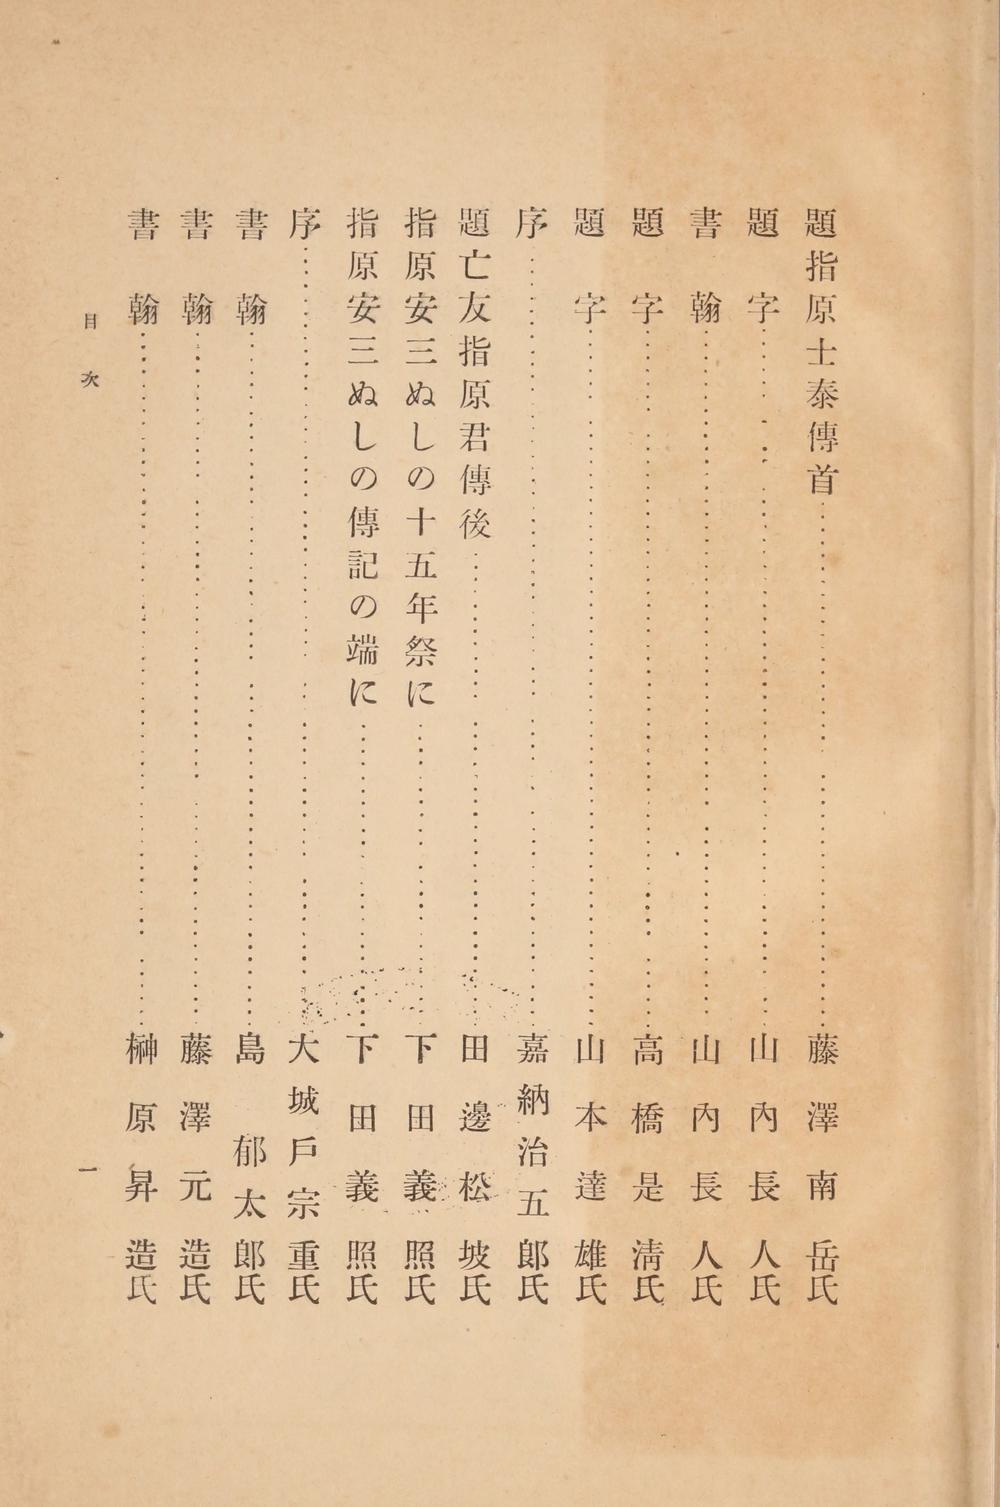 題指原士泰傳首……藤澤南岳氏
題字……山內長人氏
書翰……山內長人氏
題字……高橋是淸氏
題字……山本達雄氏
序……嘉納治五郞氏
題亡友指原君傳後……田邊松坡氏
指原安三ぬしの十五年祭に……下田義照氏
指原安三ぬしの傳記の端に……下田義照氏
序……大城戶宗重氏
書翰……島郁太郞氏
書翰……藤澤元造氏
書翰……榊原昇造氏
目次
一